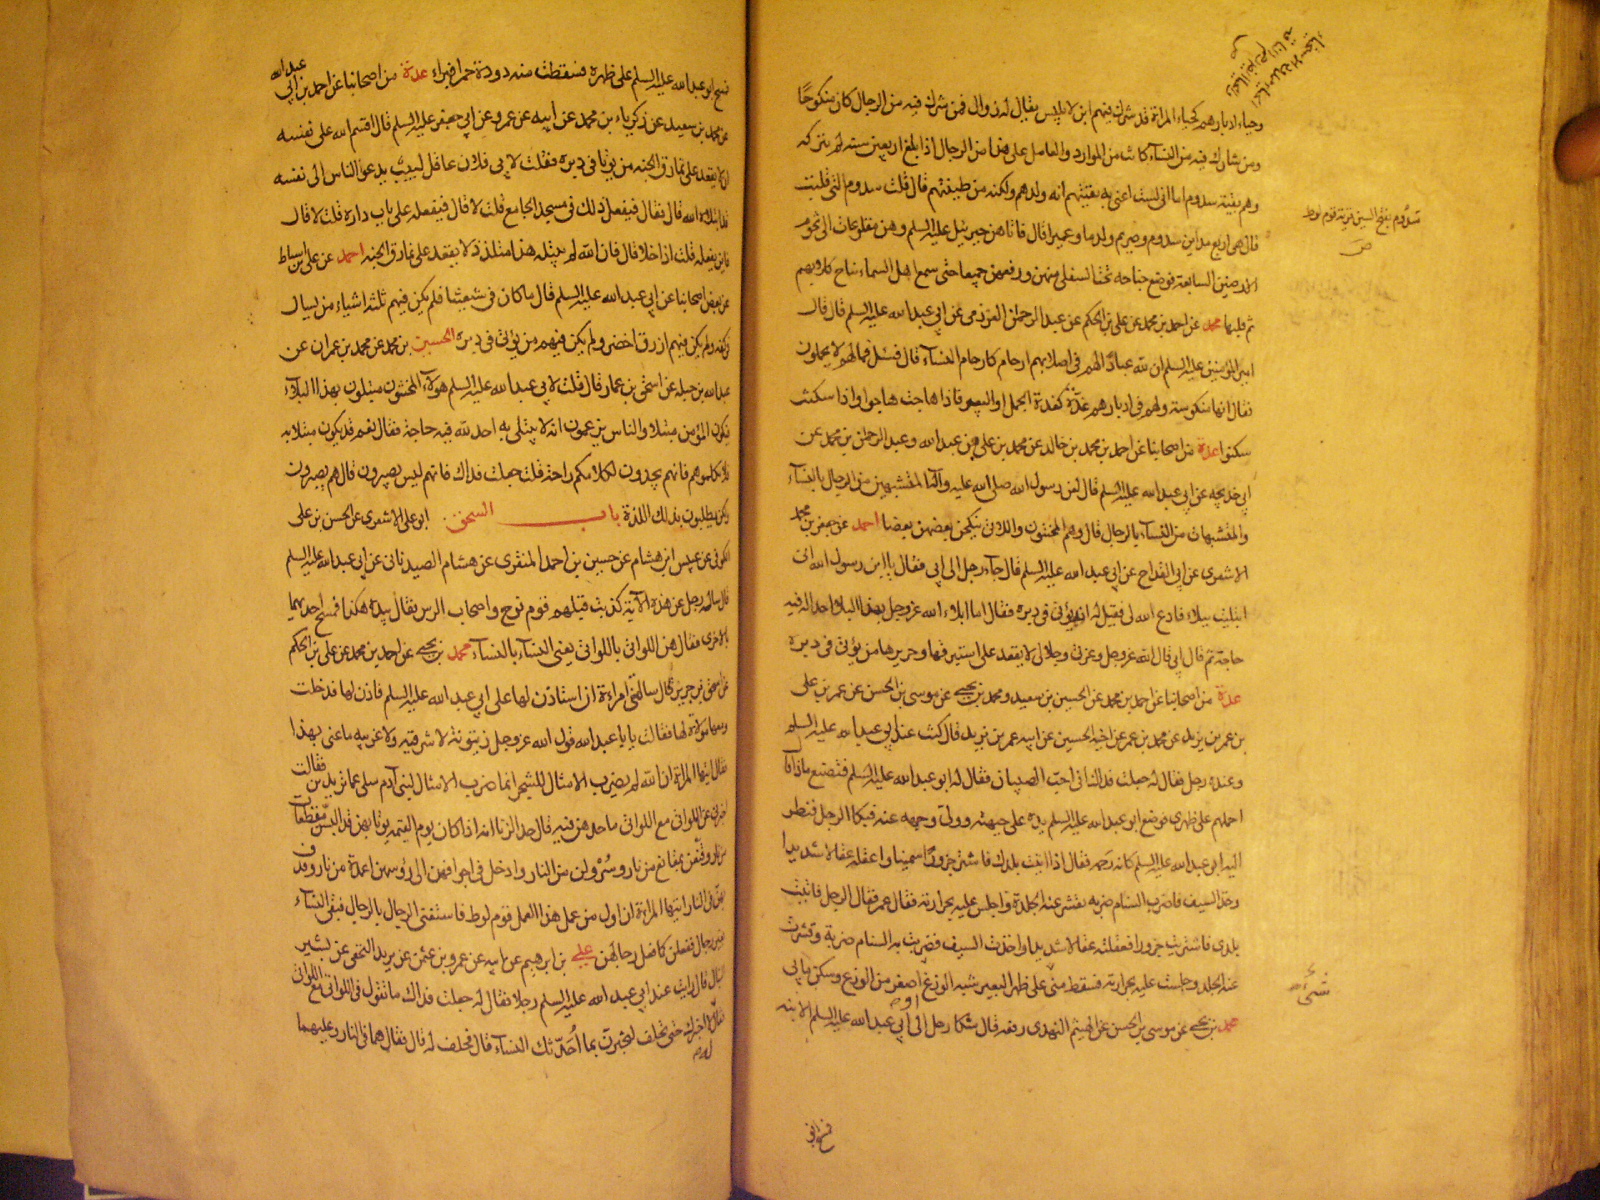 وحياء ادبارهم كحياء المراة قد شرك فيهم ابن لابليس يقال له زوال فمن شرك فيه من الرجال كان منكوحًا
ومن شارك فيه من النساء كانت من الموارد والعامل على هذا من الرجال اذا بلغ اربعين سنة لم يتركه
وهم بقية سدوم اما انى لست اعنى به بقيتهم انه ولدهم ولكنه من طينتهم قال قلت سدوم التى قلبت
قال هى اربع مداين سدوم وصريم ولدما وعميرا قال فاتاهن جبرئيل عليه السلم وهن مقلوعات الى تخوم
الارضين السابعة فوضع جناحه تحت السفلى منهن ورفعهن جميعا حتى سمع اهل السماء نباح كلابهم
ثم قلبها محمد عن احمد بن محمد عن على بن الحكم عن عبد الرحمن العزرمى عن ابي عبد الله عليه السلم قال قال
امير المؤمنين عليه السلم ان لله عبادًا لهم فى اصلابهم ارحام كارحام النساء قال فسئل فما لهم لا يحملون
فقال انها منكوسة ولهم فى ادبارهم غدّة كغدة الجمل او البعير فاذا هاجت هاجوا واذا سكنت
سكنوا عدة من اصحابنا عن احمد بن محمد بن خالد عن محمد بن على عن عبد الله وعبد الرحمن بن محمد عن
ابي خديجه عن ابي عبد الله عليه السلم قال لعن رسول الله صلى الله عليه وآله المتشبهين من الرجال بالنساء
والمتشبهات من النساء بالرجال قال وهم المخنثون واللاتى ينكحن بعضهن بعضا احمد عن جعفر بن محمد
الاشعرى عن ابن القداح عن ابي عبد الله عليه السلم قال جآء رجل الى ابي فقال يا ابن رسول الله انى
ابتليت ببلاء فادع الله لى فقيل له انه يؤتى فى دبره فقال اما ابلاء الله عز وجل بهذا البلاء احدا له فيه
حاجة ثم قال ابي قال الله عز وجل وعزتى وجلالى لا يقعد على استبرقها وحريرها من يؤتى فى دبره
عدة من اصحابنا عن احمد بن محمد عن الحسين بن سعيد ومحمد بن يحيى عن موسى بن الحسن عن عمر بن على
بن عمر بن يزيد عن محمد بن عمر عن اخيه الحسين عن ابيه عمر بن يزيد قال كنت عند ابي عبد الله عليه السلم
وعنده رجل فقال له جعلت فداك انى احب الصبيان فقال له ابو عبد الله عليه السلم فتصنع ماذا قال
احملهم على ظهرى فوضع ابو عبد الله عليه السلم يده على جبهته وولى وجهه عنه فبكا الرجل فنظر
اليه ابى عبد الله عليه السلم كانه رحمه فقال اذا اتيت بلدك فاشتر جزورًا سمينا واعقله عقالا شديدا
وخذ السيف فاضرب السنام ضربه تقشر عنه الجلدة واجلس عليه بحرارته فقال عمر فقال الرجل فاتيت
بلدى فاشتريت جزورا فعقلته عقالا شديدا واخذت السيف فضربت به السنام ضربة وقشرت
عنه الجلد وجلست عليه بحرارته فسقط منى على ظهر البعير شبه الوزغ اصغر من الوزغ وسكن ما بى
محمد بن يحيى عن موسى بن الحسن عن الهيثم النهدى رفعه قال شكا رجل الى ابي عبد الله عليه السلم الابنة
سدوم بفتح السين قرية قوم لوط
ص
فمسح ابو عبد الله عليه السلم على ظهره فسقطت منه دودة حمرا فبراء عدة من اصحابنا عن احمد بن ابي عبد الله
عن محمد بن سعيد عن زكرياء بن محمد عن ابيه عن عمرو عن ابي جعفر عليه السلم قال اقسم الله على نفسه
ان لا يقعد على نمارق الجنه من يؤتى فى دبره فقلت لابى فلان عاقل لبيب يدعو الناس الى نفسه
قد ابتلاه الله قال فقال فيفعل ذلك فى مسجد الجامع قلت لا قال فيفعله على باب داره قلت لا قال
فاين يفعله قلت اذا خلا قال فان الله لم يبتله هذا متلذذ لا يقعد على نمارق الجنه احمد عن على بن اسباط
عن بعض اصحابنا عن ابي عبد الله عليه السلم قال ما كان فى شيعتنا فلم يكن فيهم ثلثة اشياء من يسال
فى كفه ولم يكن فيهم ازرق اخضر ولم يكن فيهم من يؤتى فى دبره الحسين بن محمد عن محمد بن عمران عن
عبد الله بن جبله عن اسحق بن عمار قال قلت لابي عبد الله عليه السلم هولاء المخنثون مبتلون بهذا البلاء
فيكون المؤمن مبتلا والناس يزعمون انه لا يبتلى به احد لله فيه حاجة فقال نعم قد يكون مبتلا به
فلا تكلموهم فانهم يجدون لكلامكم راحة قلت جعلت فداك فانهم ليس يصبرون قال هم يصبرون
ولكن يطلبون بذلك اللذة باب السحق ابو على الاشعرى عن الحسن بن على
الكوفى عن عبيس بن هشام عن حسين بن احمد المنقرى عن هشام الصيدنانى عن ابي عبد الله عليه السلم
قال ساله رجل عن هذه الآية كذبت قبلهم قوم نوح واصحاب الرس فقال بيده هكذا فمسح احديهما
بالاخرى فقال هن اللواتى باللواتى يعنى النساء بالنساء محمد بن يحيى عن احمد بن محمد عن على بن الحكم
عن اسحق بن جرير قال سالتنى امراءة ان استاذن لها على ابي عبد الله عليه السلم فاذن لها فدخلت
ومعها مولاة لها فقالت يا با عبد الله قول الله عز وجل زيتونة لا شرقية ولا غربية ما عنى بهذا
فقال ايتها المراة ان الله لم يضرب الامثال للشجر انما ضرب الامثال لبنى آدم سلى عما تريدين فقالت
اخبرنى عن اللواتى مع اللواتى ما حدهن فيه قال حد الزنا انه اذا كان يوم القيمة يؤتى بهن قد البسن مقطعات
من نار وقنّعن بمقانع من نار وسُرْولن من النار وادخل فى اجوافهن الى رؤسهن اعمدة من نار وقذف
بهن فى النار ايتها المراة ان اول من عمل هذا العمل قوم لوط فاستغنى الرجال بالرجال فبقى النساء
بغير رجال ففعلن كما فعل رجالهن على بن ابرهيم عن ابيه عن عمرو بن عثمن عن يزيد النخعى عن بشير
النبال قال رايت عند ابي عبد الله عليه السلم رجلا فقال له جعلت فداك ما تقول فى اللواتى مع اللواتى
فقال لا اخبرك حتى تحلف لتخبرن بما احدّثك النساء قال فحلف له قال فقال هما فى النار وعليهما